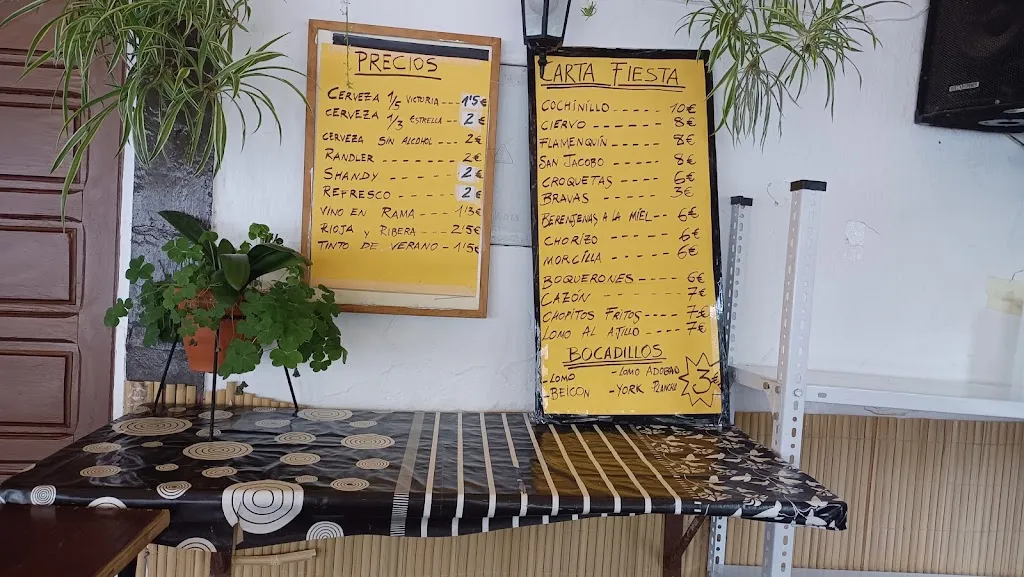 PRECIOS
CERVEZA 1/5 VICTORIA --- 1'5€
CERVEZA 1/3 ESTRELLA -- 2€
CERVEZA SIN ALCOHOL -- 2€
RANDLER ------ 2€
SHANDY ---- 2€
REFRESCO ---- 2€
VINO EN RAMA --- 1'3€
RIOJA y RIBERA --- 2'5€
TINTO DE VERANO - 1'5€
CARTA FIESTA
COCHINILLO ----- 10€
CIERVO ------ 8€
FLAMENQUÍN ---- 8€
SAN JACOBO ---- 8€
CROQUETAS ---- 6€
BRAVAS ---- 3€
BERENJENAS A LA MIEL -- 6€
CHORIZO ---- 6€
MORCILLA ---- 6€
BOQUERONES --- 6€
CAZÓN ------ 7€
CHOPITOS FRITOS --- 7€
LOMO AL AJILLO ---- 7€
BOCADILLOS
- LOMO - LOMO ADOBADO
- BEICON - YORK PLANCHA
3€